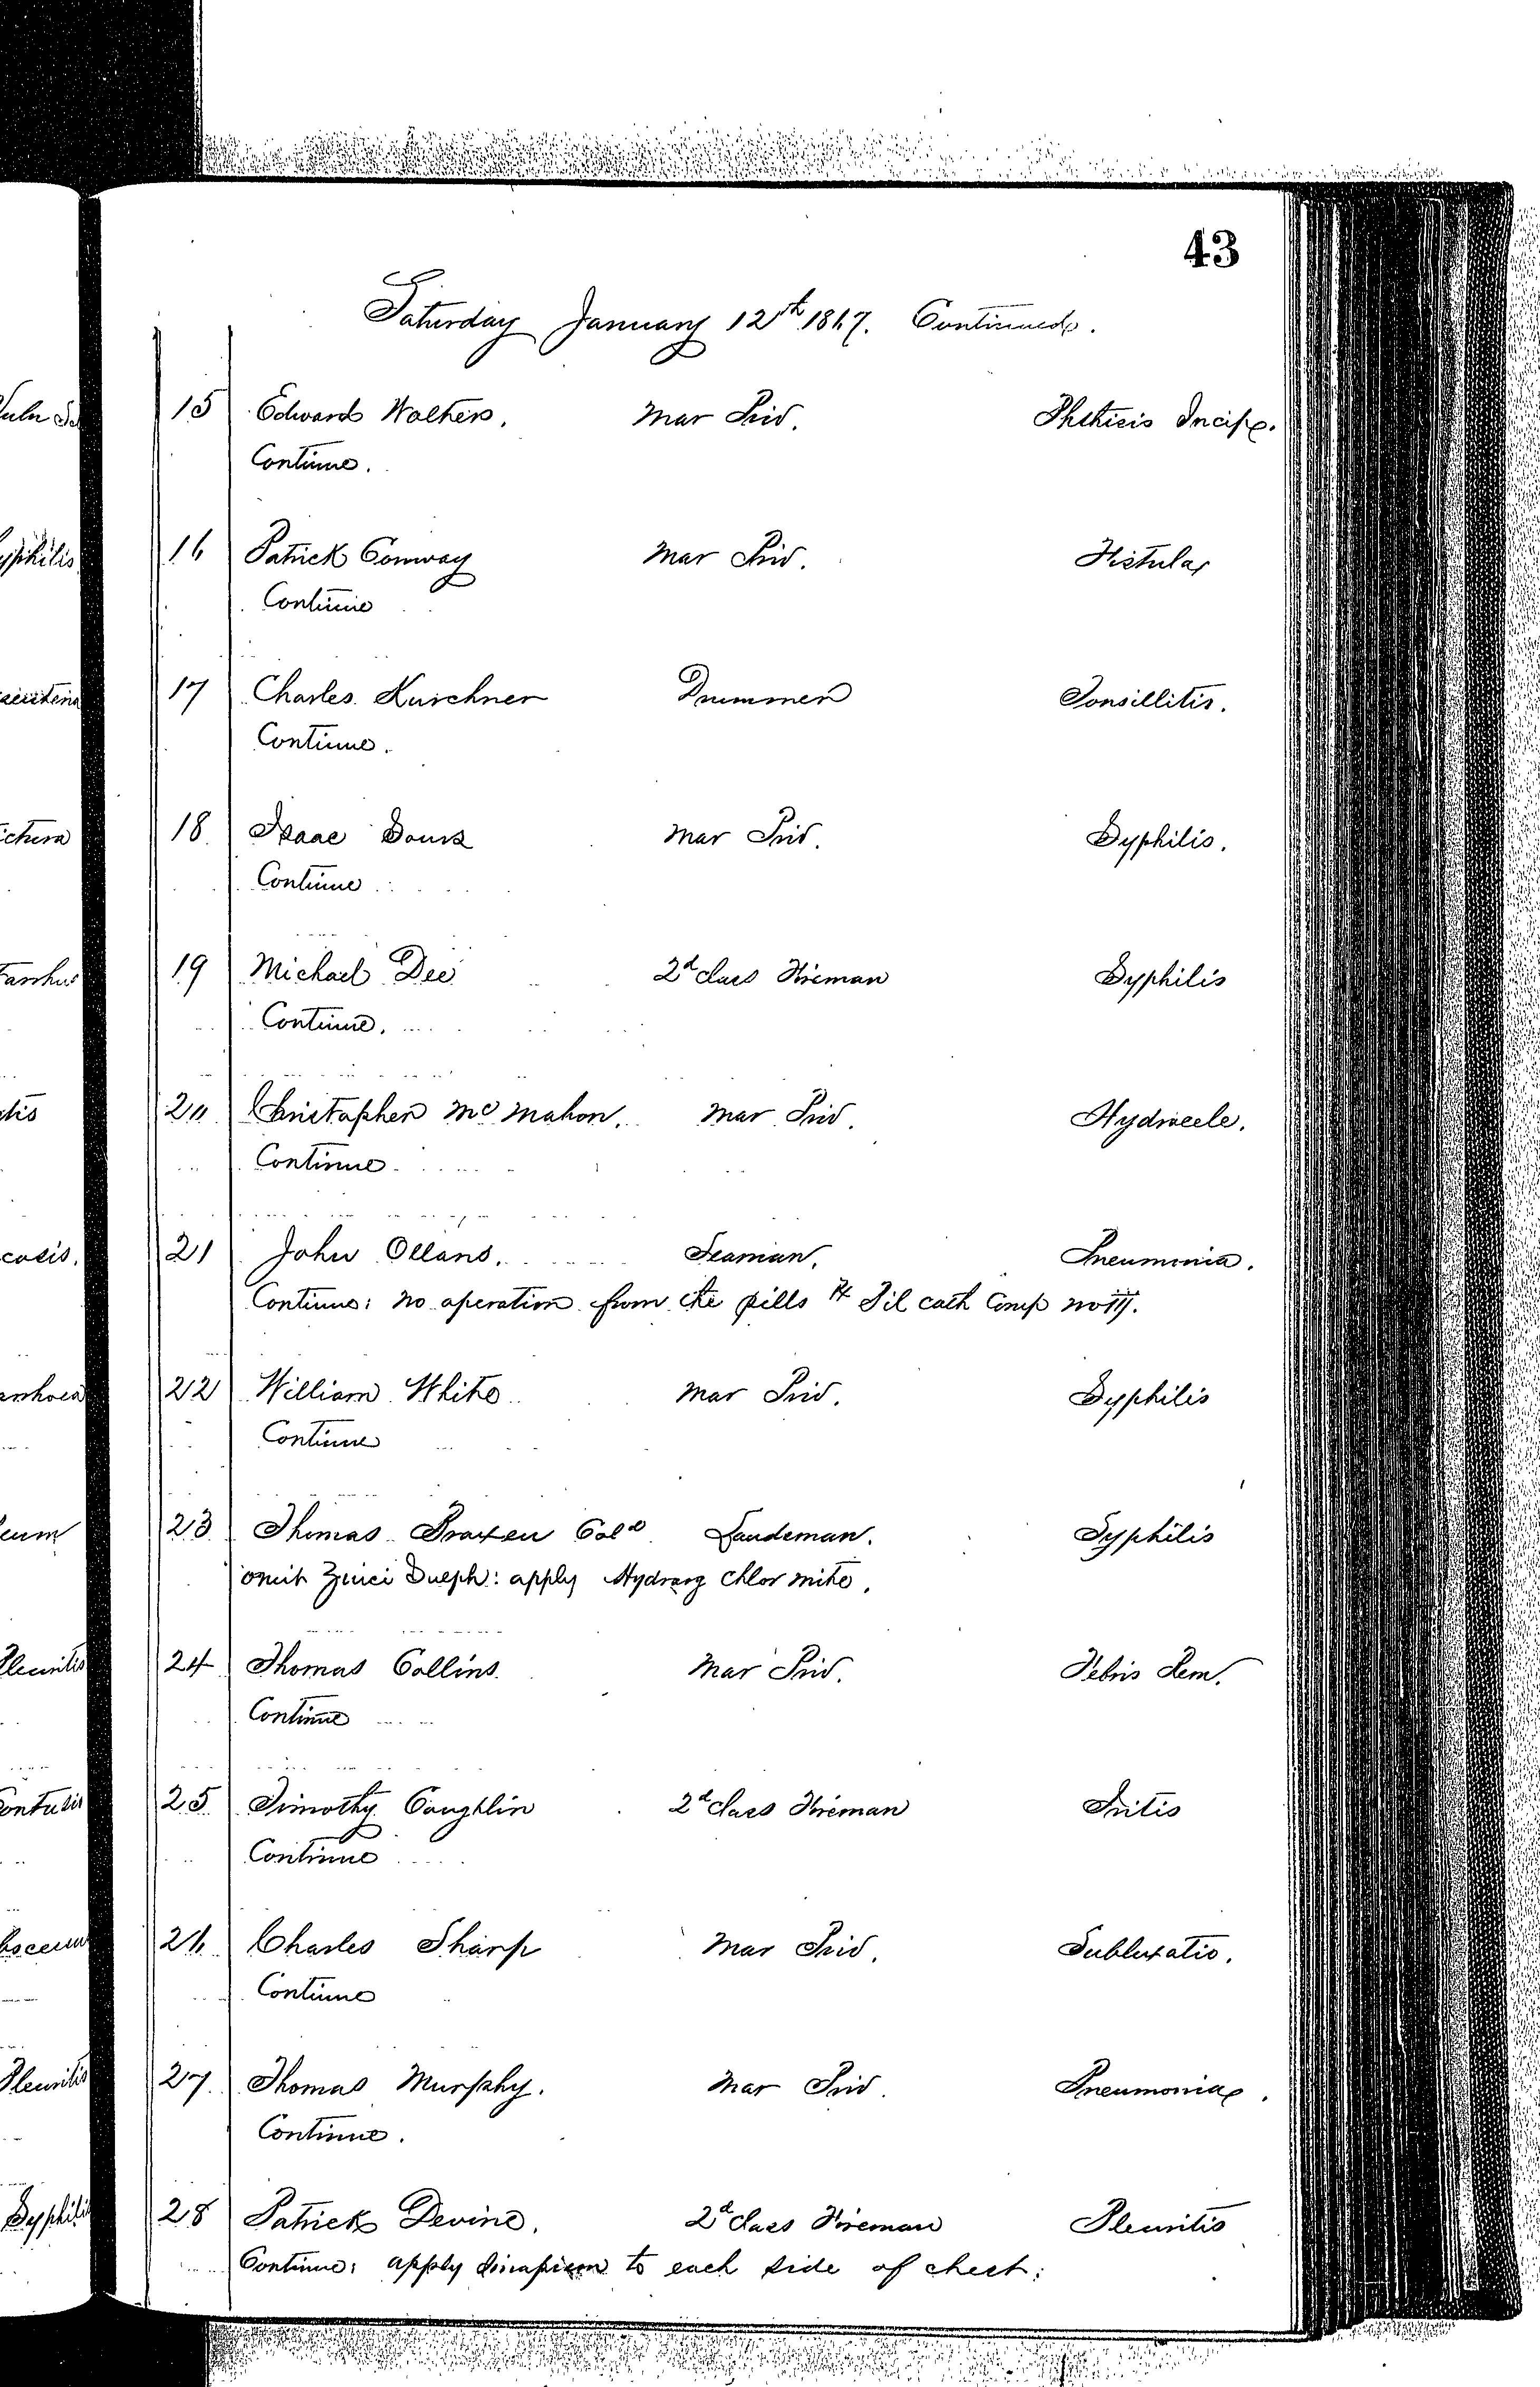 43
Saturday January 12th 1867. Continued.
15 Edward Walters. Mar Priv. Phthisis Incip.
Continue.
16 Patrick Conway Mar Priv. Fistula
Continue
17 Charles Kurchner Drummer Tonsillitis.
Continue.
18 Isaac Mar Priv. Syphilis.
Continue
19 Michael Dee 2d Class Fireman Syphilis
Continue.
20 Christopher McMahon. Mar Priv. Hydrocele.
Continue
21 John Ollans. Seaman. Pneumonia.
Continue: no operation from the pills ℞ Pil cath Comp no iij.
22 William White Mar Priv. Syphilis
Continue
23 Thomas Col'd Landsman. Syphilis
omit Zinci Sulph: apply Hydrarg Chlor mite.
24 Thomas Collins Mar Priv. Febris Rem.
Continue
25 Timothy Coughlin 2d Class Fireman Iritis
Continue
26 Charles Sharp Mar Priv. Subluxatio.
Continue
27 Thomas Murphy. Mar Priv. Pneumonia.
Continue.
28 Patrick Devine. 2d Class Fireman Pleuritis
Continue: apply sinapism to each side of chest: